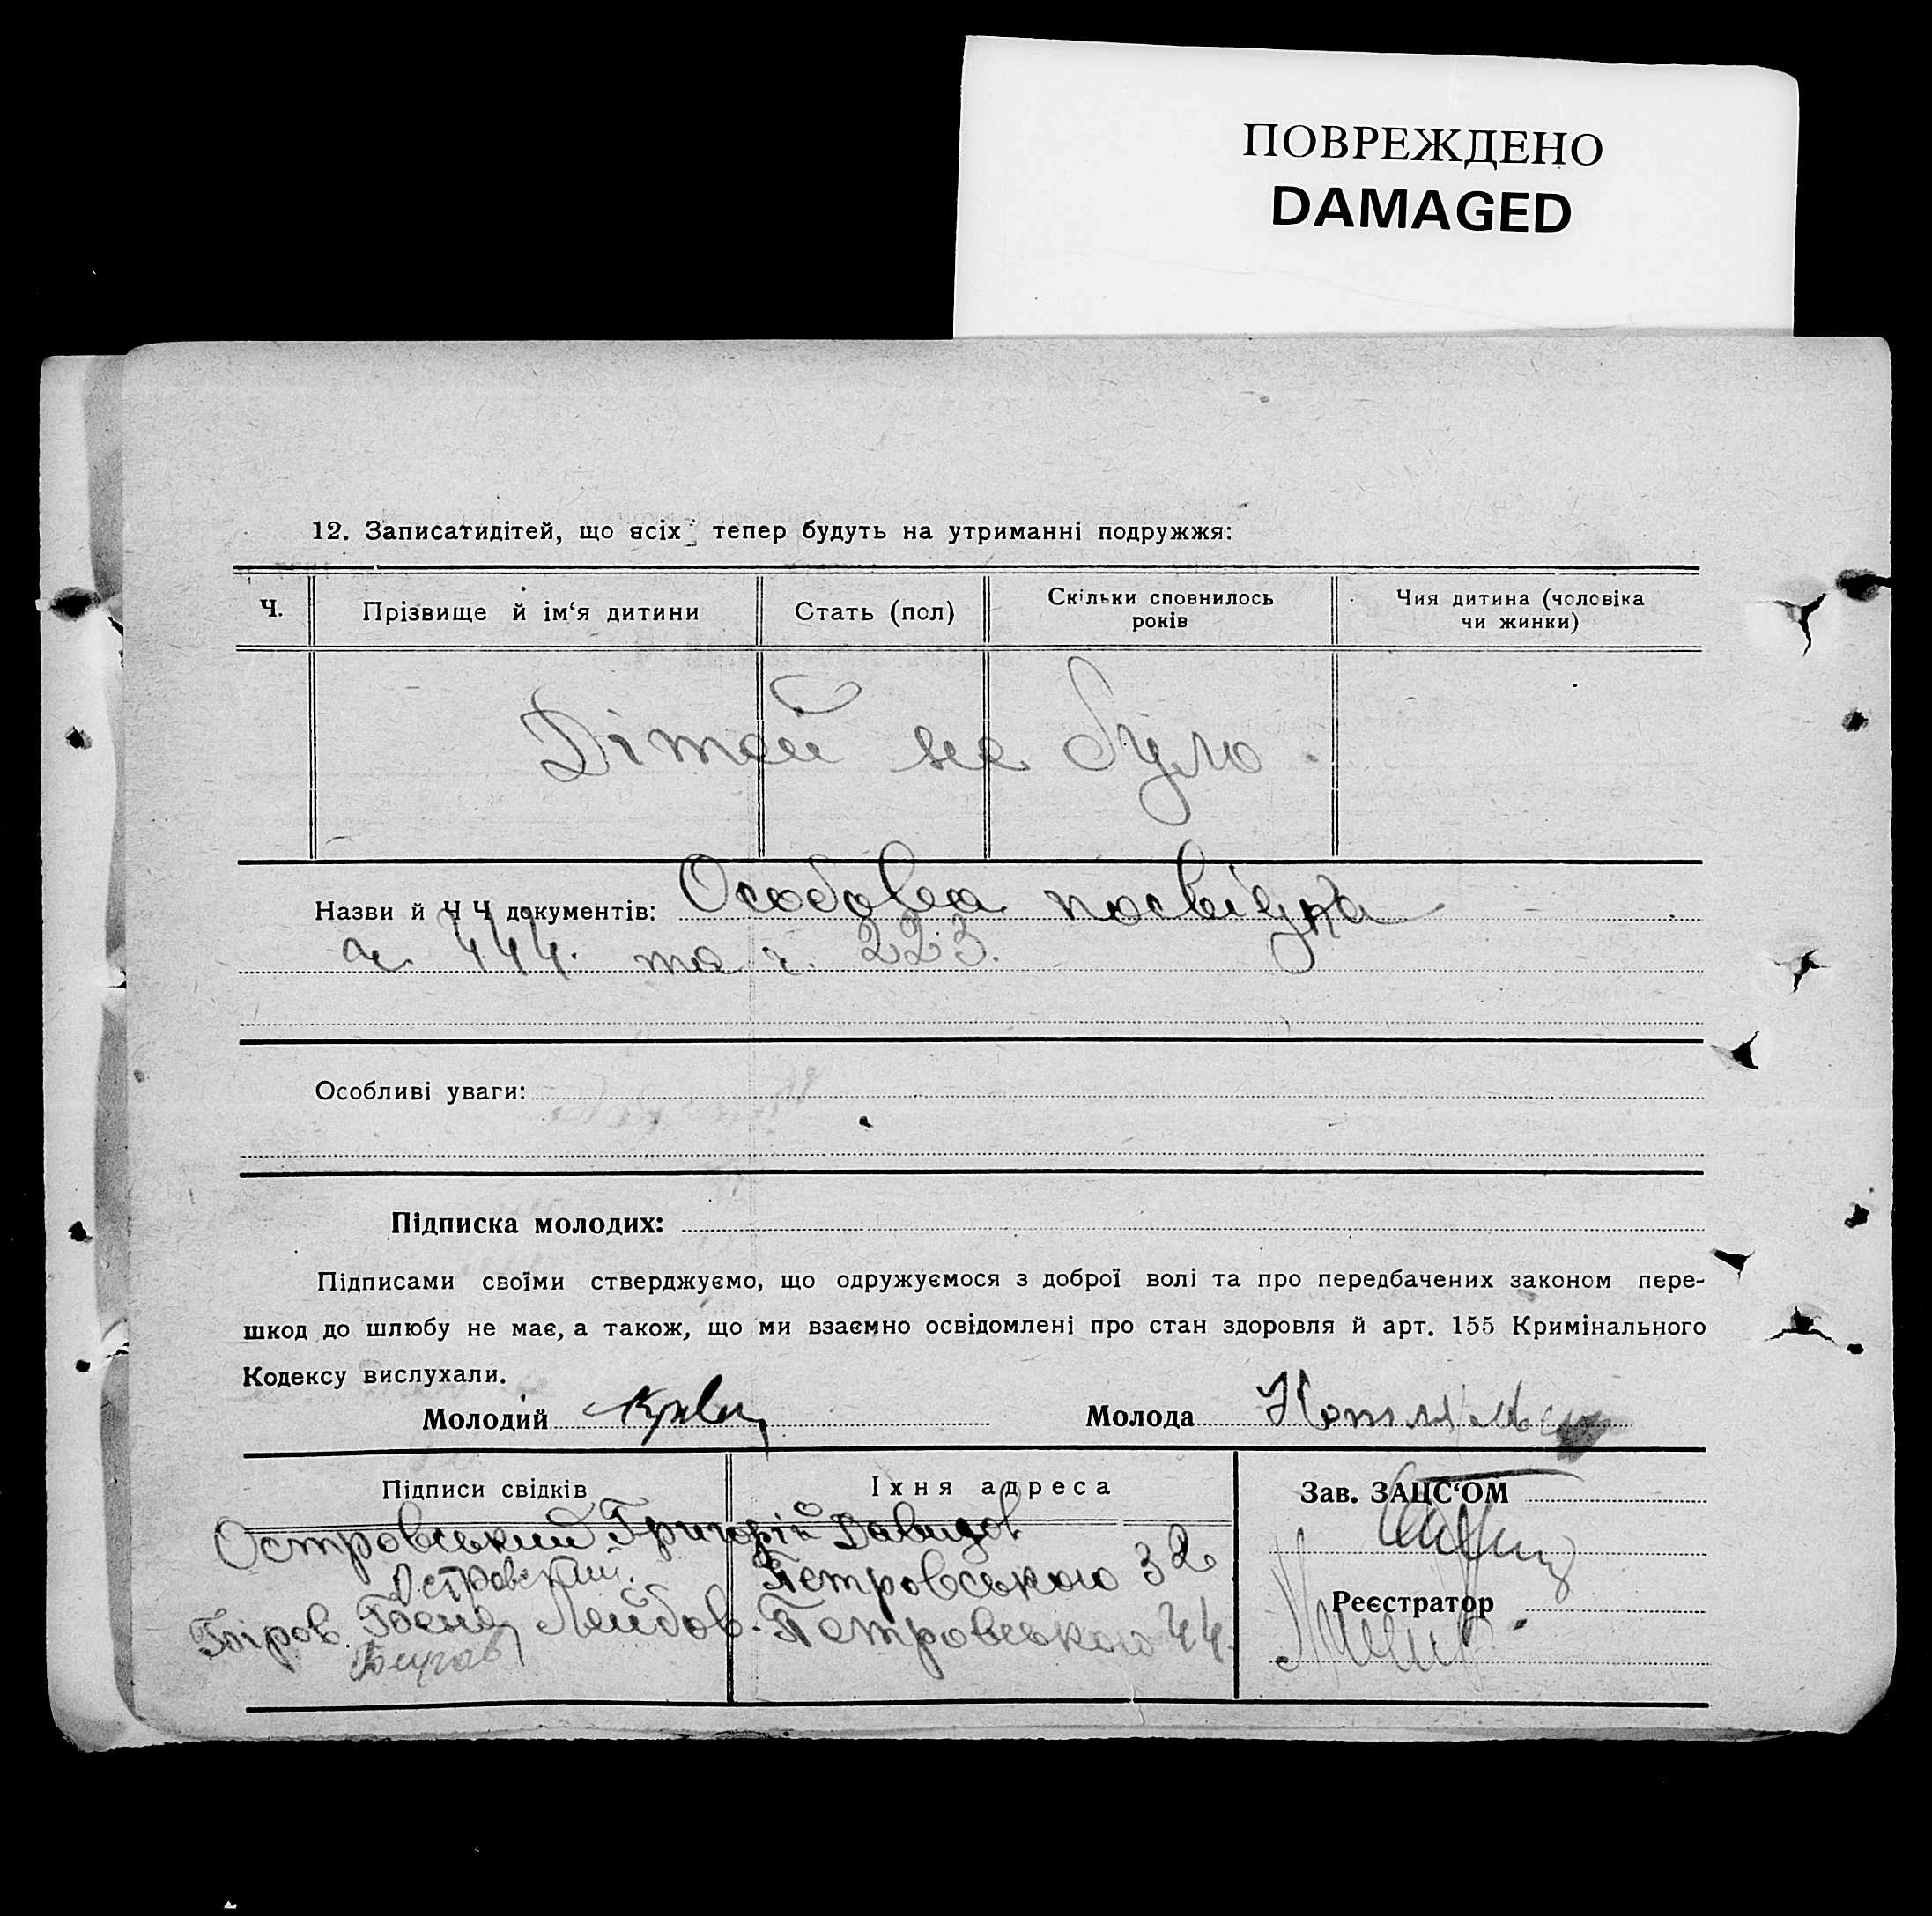 ПОВРЕЖДЕНО
DAMAGED
12. Записатидітей, що всіх тепер будуть на утриманні подружжя:
Ч.
Прізвище й ім‘я дитини
Стать (пол)
Скільки сповнилось
років
Чия дитина (чоловіка
чи жинки)
Дітей не було.
Назви й Ч Ч документів: Особова посвідка
ч. 444. та ч. 223.
Особливі уваги:
Підписка молодих:
Підписами своїми стверджуємо, що одружуємося з доброї волі та про передбачених законом пере-
шкод до шлюбу не має, а також, що ми взаємно освідомлені про стан здоровля й арт. 155 Кримінального
Кодексу вислухали.
Молодий
Молода
Підписи свідків
Іхня адреса
Зав. ЗАЦС‘ОМ
Островський Григорій Давидов
Петровського 32
Островский
Реєстратор
Лейбов. Петровського 44.